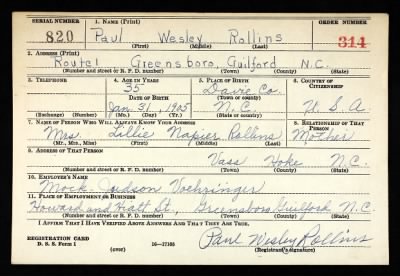 SERIAL NUMBER 1. NAME (Print) ORDER NUMBER
820 Paul Wesley Rollins 314
(First) (Middle) (Last)
2. ADDRESS (Print)
Route 1 Greensboro, Guilford N.C.
(Number and street or R. F. D. number) (Town) (County) (State)
3. TELEPHONE 4. AGE IN YEARS 5. PLACE OF BIRTH 6. COUNTRY OF CITIZENSHIP
35 Davie Co.
DATE OF BIRTH (Town or county)
Jan. 31, 1905 N.C. U.S.A
(Exchange) (Number) (Mo.) (Day) (Yr.) (State or country)
7. NAME OF PERSON WHO WILL ALWAYS KNOW YOUR ADDRESS 8. RELATIONSHIP OF THAT PERSON
Mrs. Lillie Napier Rollins Mother
(Mr., Mrs., Miss) (First) (Middle) (Last)
9. ADDRESS OF THAT PERSON
Vass Hoke N.C.
(Number and street or R. F. D. number) (Town) (County) (State)
10. EMPLOYER'S NAME
Mock-Judson Voehringer
11. PLACE OF EMPLOYMENT OR BUSINESS
Howard and Hiatt St., Greensboro Guilford N.C.
(Number and street or R. F. D. number) (Town) (County) (State)
I AFFIRM THAT I HAVE VERIFIED ABOVE ANSWERS AND THAT THEY ARE TRUE.
REGISTRATION CARD
D. S. S. Form 1 (over) 16—17105 Paul Wesley Rollins
(Registrant's signature)